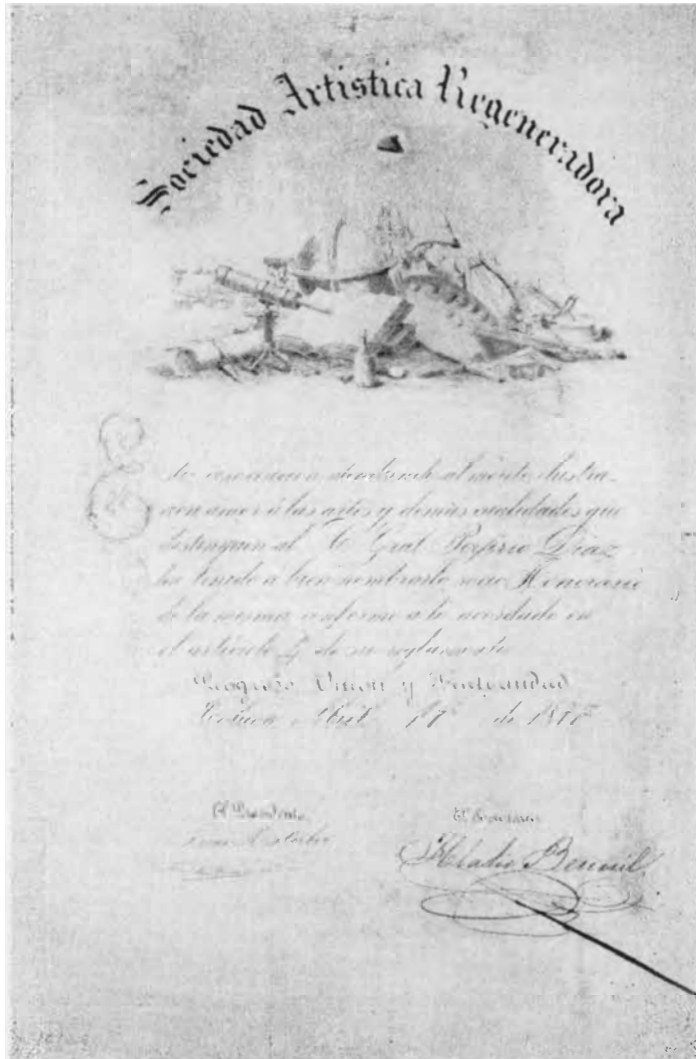 Sociedad Artistica Regeneradora
al mérito, ilustra-
amor á las artes y demás cualidades que
distinguen al C. Gral. Porfirio Diaz
ha tenido a bien nombrarlo socio Honorario
de la misma, conforme a lo acordado en
el artículo de su reglamento
Progreso, Union y Fraternidad
Abril 17 de 1877
El Presidente
El Secretario